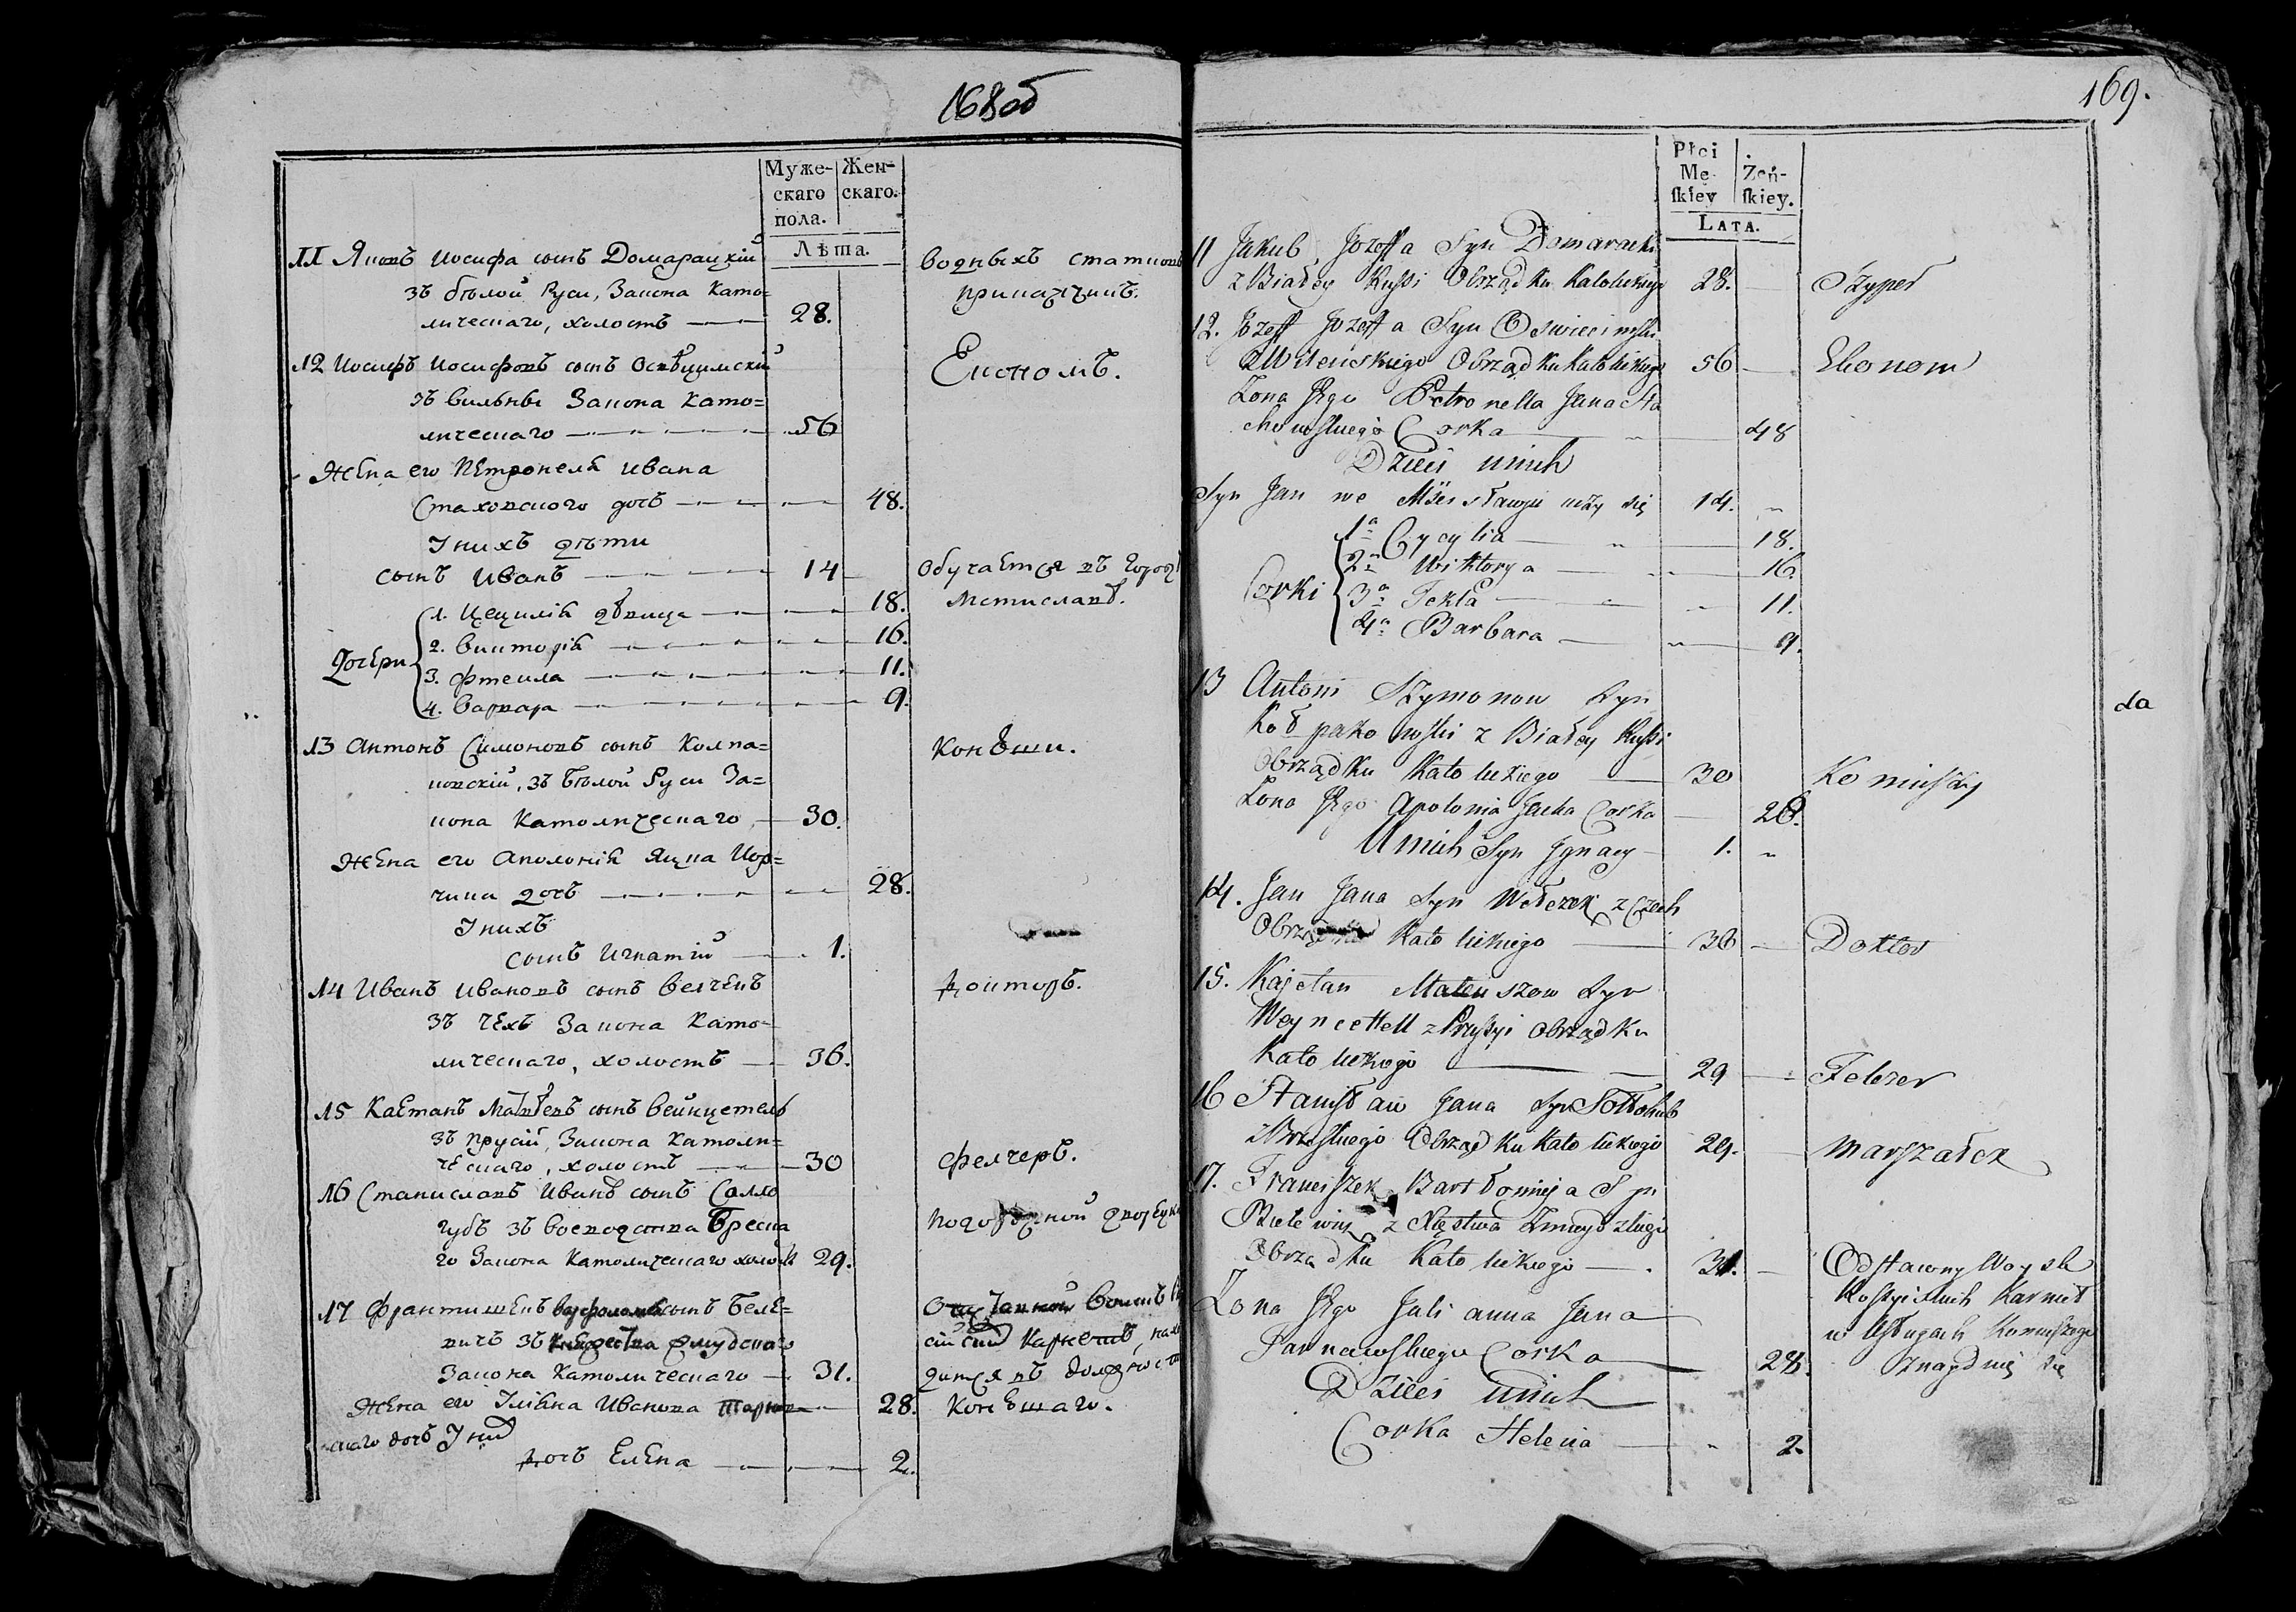 168об
Муже- Жен-
скаго скаго.
пола.
Лѣта.
11 Яковъ Иосифа сынъ Домарацкій водныхъ статковъ
зъ бѣлой Руси, Закона Като= прикащикъ.
лическаго, холостъ 28.
12 Иосифъ Иосифовъ сынъ Освѣцимскій Економъ.
зъ вильны Закона Като=
лическаго 56
Жена его Петронеля Ивана
Стаховского дочь 48.
У нихъ дѣти
сынъ Иванъ 14 Обучается въ Городѣ
Мстиславѣ.
Дочери
1. Цецилія дѣвица 18.
2. Викторія 16.
3. Фтекла 11.
4. Варвара 9.
13 Антонъ Симоновъ сынъ Колпа= Конюши.
ковскій, зъ бѣлой Руси За=
кона Католическаго 30.
Жена его Аполонія Яцка Кор=
чика дочь 28.
У нихъ
сынъ Игнатій 1.
14 Иванъ Ивановъ сынъ Велчекъ докторъ.
зъ Чехъ Закона Като=
лическаго, холостъ 36.
15 Каетанъ Матвѣевъ сынъ Вейнцетель
зъ Прусій, Закона Католи=
ческаго, холостъ 30 Фелчеръ.
16 Станиславъ Иванъ сынъ Солло
губъ зъ воеводства Бреска
го Закона Католическаго холостъ 29.
17 Франтишекъ сынъ Беле=
вичъ зъ Княжества Жмудска=
Закона Католическаго 31.
дится въ должности
Жена его Уліяна Иванова 28. Конюшаго.
скаго дочь У нихъ
дочь Елена 2.
169.
Płci
Mę- Żeń-
ſkiey ſkiey.
LATA.
11 Jakub Jozeffa Syn Domaracki
z Białey Russi Obrządku Katolickiego 28. Szyper
12. Jozeff Jozeffa Syn Oswiecimski
z Wilenskiego Obrządku Katolickiego 56 Ekonom
Zona Jego Petronella Jana Sta
chowskiego Corka 48
Dzieci u nich
Syn Jan we Mscisławiu uczy się 14.
Corki
1a Cycylia 18.
2a Wiktorya 16.
3a Tekla 11.
4a Barbara 9.
13 Antoni Szymonow Syn
Kołpakowski z Białey Russi
Obrządku Katolickiego 30 Koniuszy
Zona Jego Apolonia Jacka Corka 28.
U nich Syn Ignacy 1.
14. Jan Jana Syn Wełczek z Czech
Obrządku Katolickiego 36 Doktor
15. Kajetan Mateuszow Syn
Weyncettell z Prussyi Obrządku
Katolickiego 29 Felczer
16 Stanisław Jana Syn Sołłohub
z Brzeskiego Obrządku Katolickiego 29. Marszałek
17. Franciszek Bartłomieja Syn
Bielewicz z Xięstwa Zmuydzkiego
Obrządku Katolickiego 31. Odstawny Woysk
Rossyiskich Karnet
Zona Jego Julianna Jana
w Usługach Koniuszego
Tarnawskiego Corka 28. znayduie się
Dzieci u nich
Corka Helena 2.
da